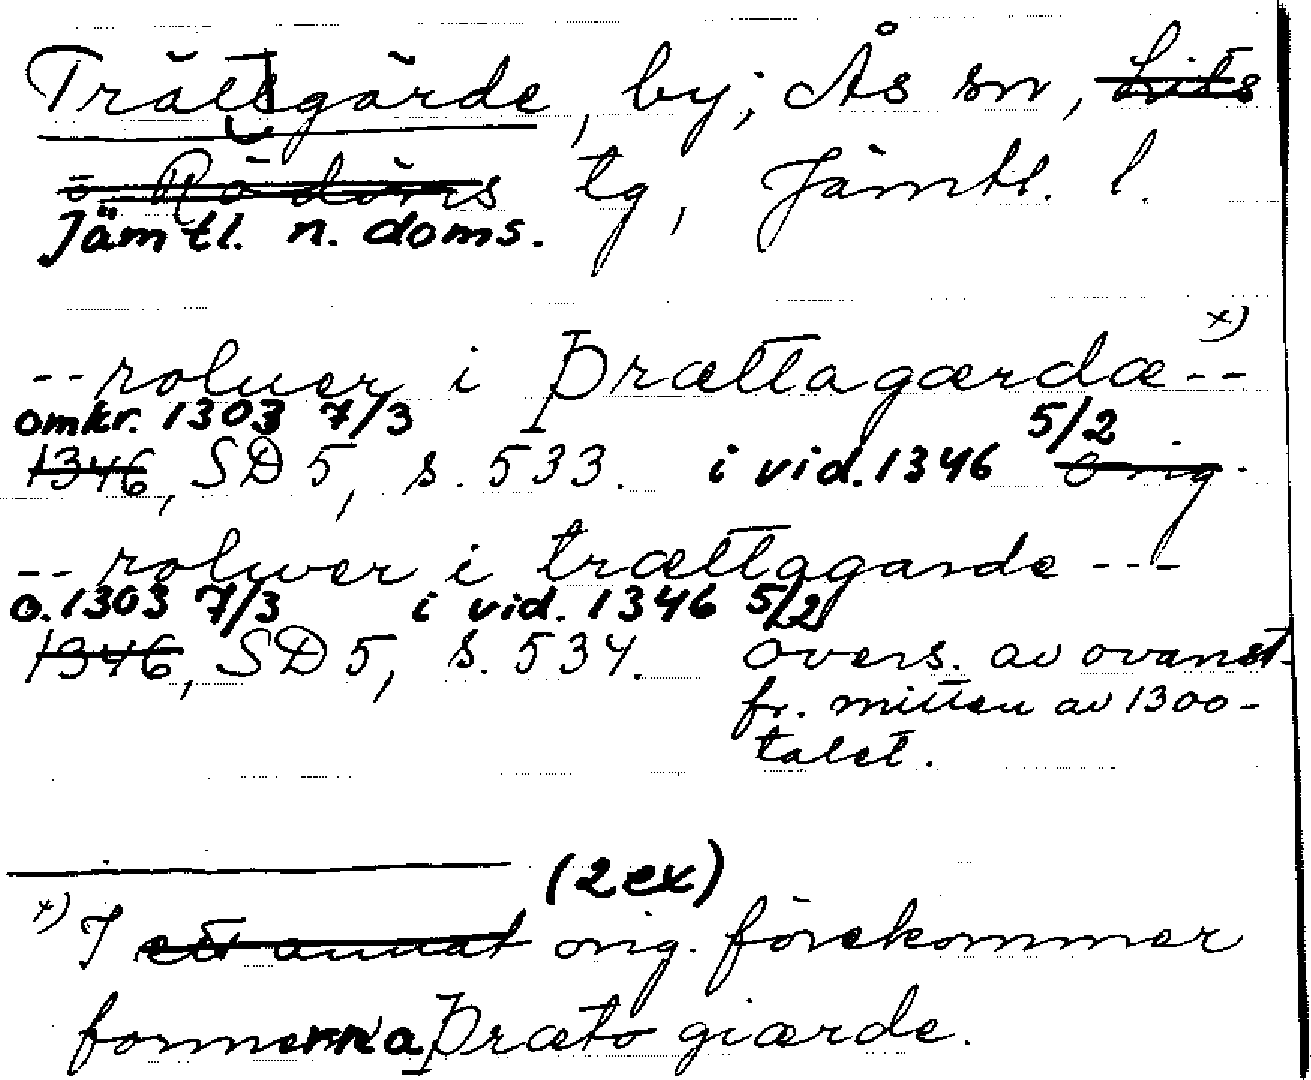 Trättgärde, by; Ås sn, Lits
o. Rödöns tg, Jämtl. l.
Jämtl. n. doms.
--roluer i Þrættagærdæ-- x)
omkr. 1303 7/3 5/2
1346, SD 5, s. 533. i vid. 1346 Orig.
-- roluver i trættagarde ---
o. 1303 7/3 i vid. 1346 5/2
1346, SD 5, s. 534. övers. av ovanst.
fr. mitten av 1300-
talet.
(2 ex)
x) I ett annat orig. förekommer
formerna Þræto giærde.